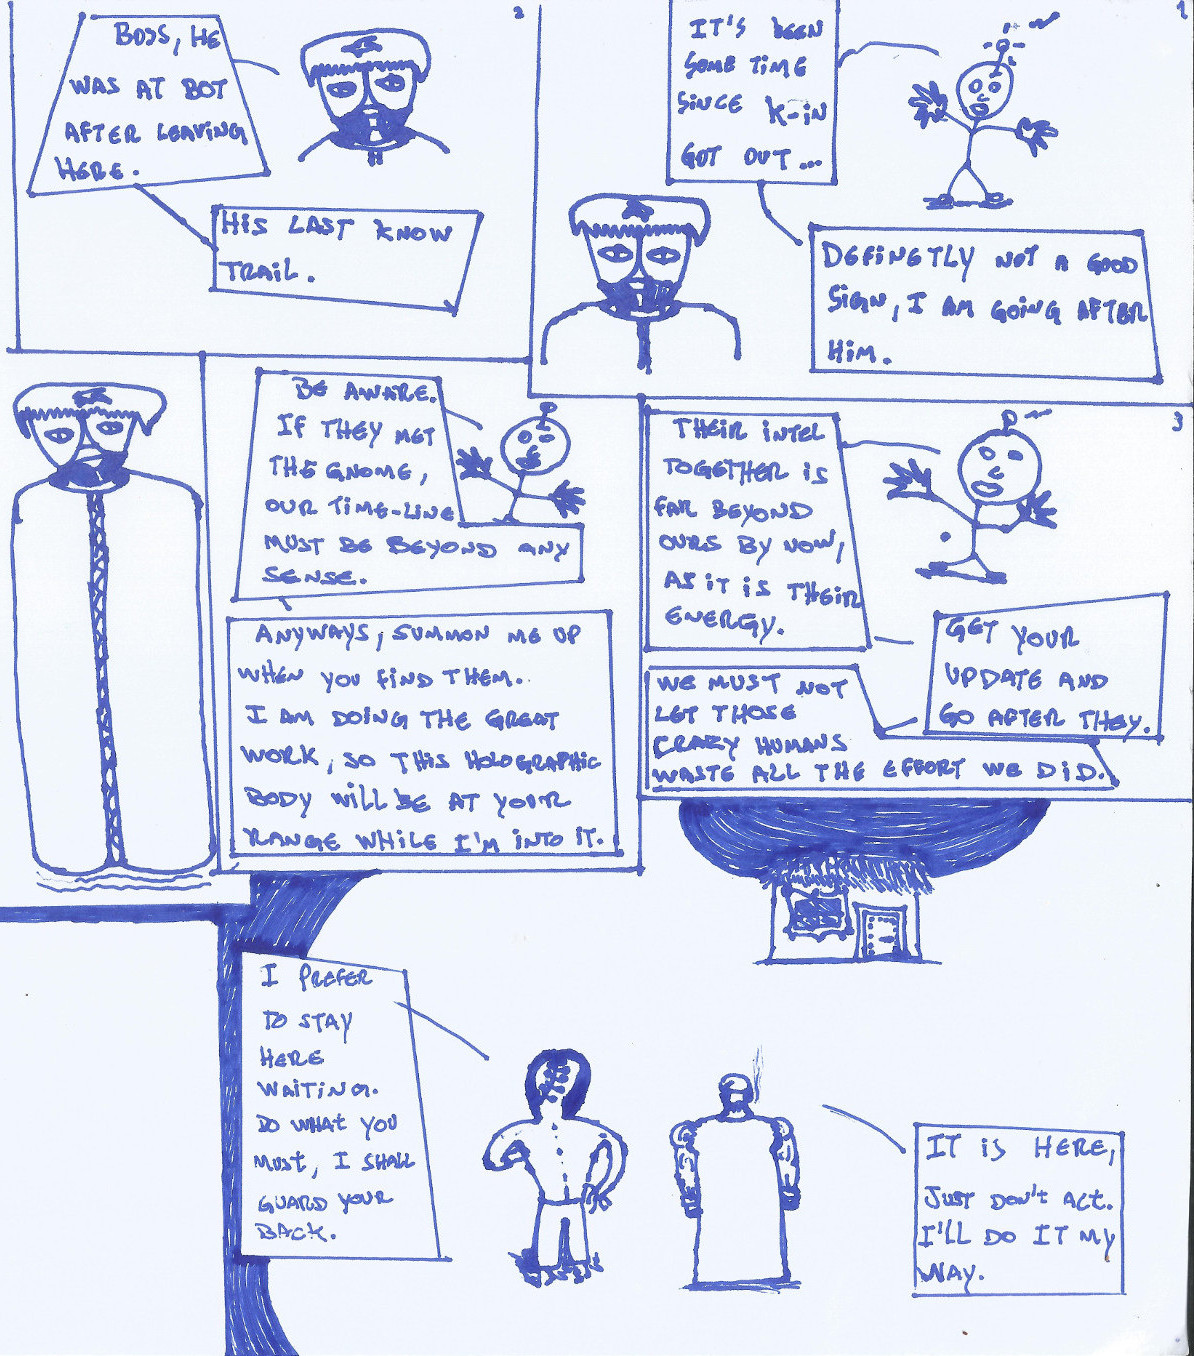 2
BOSS, HE
WAS AT BOT
AFTER LEAVING
HERE.
HIS LAST KNOW
TRAIL.
1
IT'S BEEN
SOME TIME
SINCE K-IN
GOT OUT...
DEFINETLY NOT A GOOD
SIGN, I AM GOING AFTER
HIM.
BE AWARE.
IF THEY MET
THE GNOME,
OUR TIME-LINE
MUST BE BEYOND ANY
SENSE.
ANYWAYS, SUMMON ME UP
WHEN YOU FIND THEM.
I AM DOING THE GREAT
WORK, SO THIS HOLOGRAPHIC
BODY WILL BE AT YOUR
RANGE WHILE I'M INTO IT.
3
THEIR INTEL
TOGETHER IS
FAR BEYOND
OURS BY NOW,
AS IT IS THEIR
ENERGY.
GET YOUR
UPDATE AND
GO AFTER THEY.
WE MUST NOT
LET THOSE
CRAZY HUMANS
WASTE ALL THE EFFORT WE DID.
I PREFER
TO STAY
HERE
WAITING.
DO WHAT YOU
MUST, I SHALL
GUARD YOUR
BACK.
IT IS HERE,
JUST DON'T ACT.
I'LL DO IT MY
WAY.